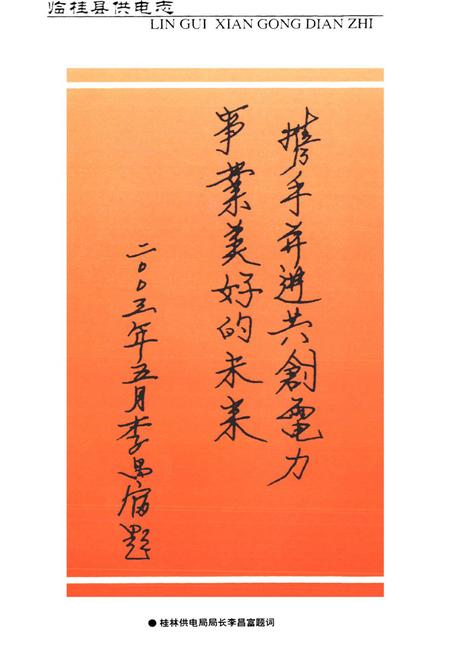 临桂县供电志
LIN GUI XIAN GONG DIAN ZHI
攜手并進共創電力
事業美好的未来
二〇〇三年五月李昌富题
●桂林供电局局长李昌富题词